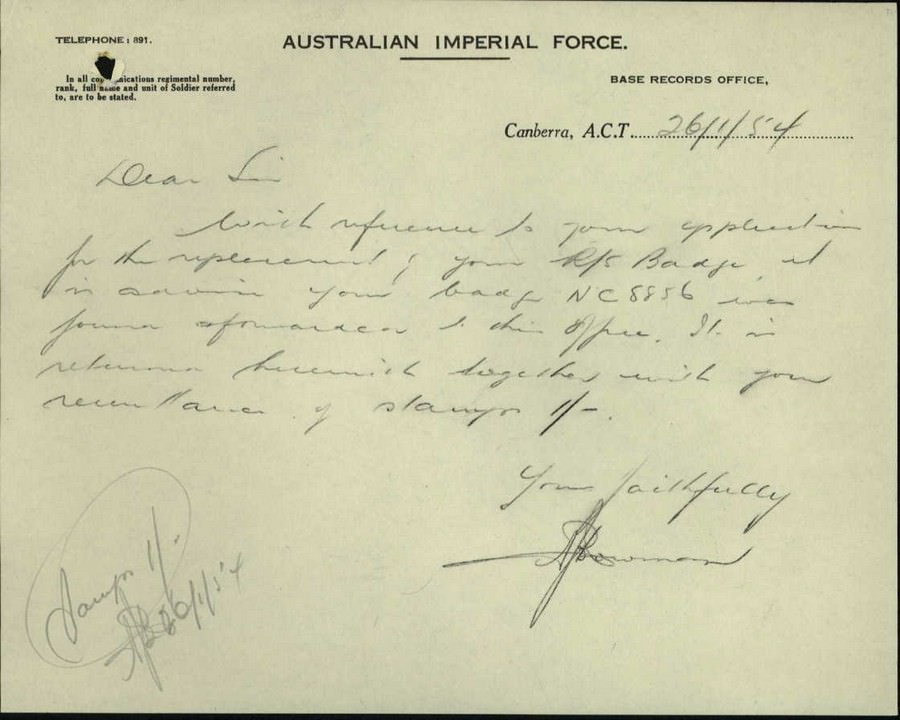 TELEPHONE: 891.
AUSTRALIAN IMPERIAL FORCE.
BASE RECORDS OFFICE,
In all nications regimental number,
rank, full name and unit of Soldier referred
to, are to be stated.
Canberra, A.C.T. 26/1/54
Dear Sir
With reference to your application
for the replacement of your R/S Badge, it
is advised your badge NC8856 was
found & forwarded to this office. It is
returned herewith together with your
remittance of stamps 1/-.
Yours faithfully
Bowman
Stamps 1/-
26/1/54